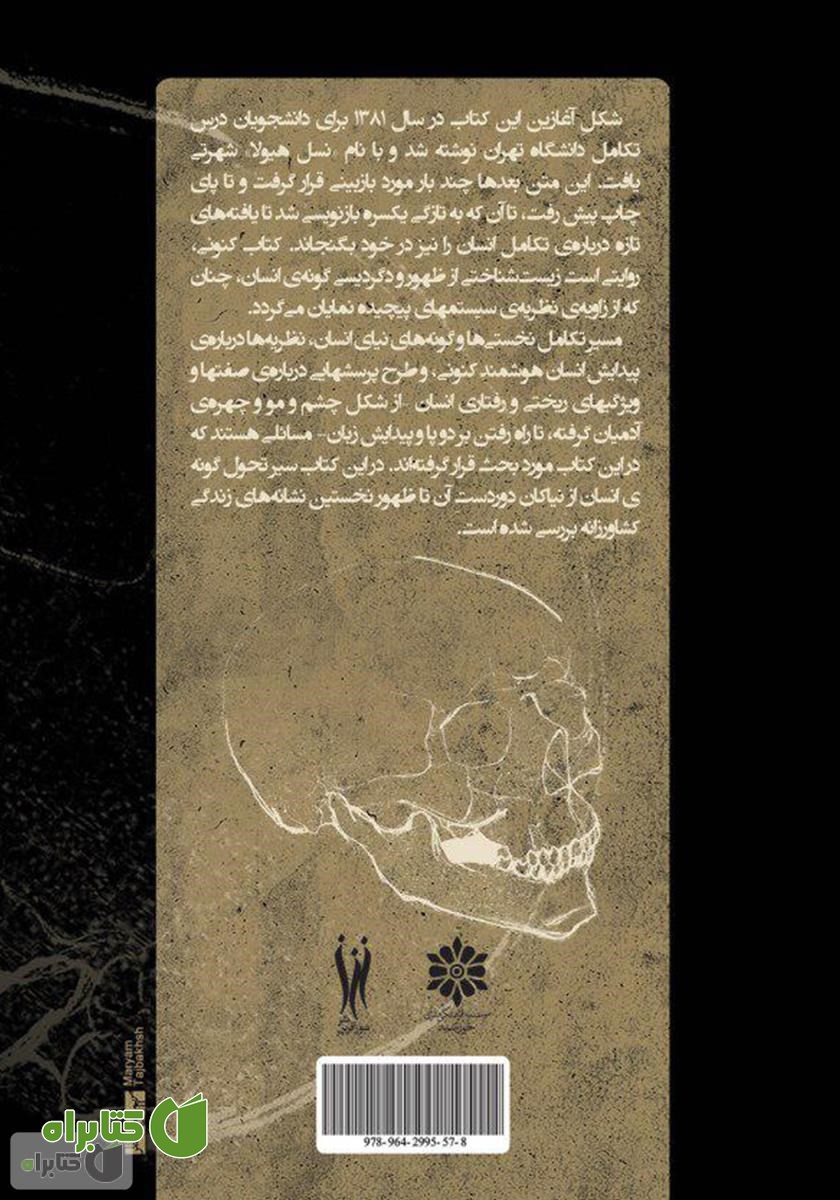 شکل آغازین این کتاب در سال ۱۳۸۱ برای دانشجویان درس
تکامل دانشگاه تهران نوشته شد و با نام «نسل هیولا» شهرتی
یافت. این متن بعدها چند بار مورد بازبینی قرار گرفت و تا پای
چاپ پیش رفت، تا آن که به تازگی یکسره بازنویسی شد تا یافته‌های
تازه درباره‌ی تکامل انسان را نیز در خود بگنجاند. کتاب کنونی،
روایتی است زیست‌شناختی از ظهور و دگردیسی گونه‌ی انسان، چنان
که از زاویه‌ی نظریه‌ی سیستمهای پیچیده نمایان می‌گردد.
مسیر تکامل نخستی‌ها و گونه‌های نیای انسان، نظریه‌ها درباره‌ی
پیدایش انسان هوشمند کنونی، و طرح پرسشهایی درباره‌ی صفتها و
ویژگیهای ریختی و رفتاری انسان -از شکل چشم و مو و چهره‌ی
آدمیان گرفته، تا راه رفتن بر دو پا و پیدایش زبان- مسائلی هستند که
در این کتاب مورد بحث قرار گرفته‌اند. در این کتاب سیر تحول گونه
ی انسان از نیاکان دوردست آن تا ظهور نخستین نشانه‌های زندگی
کشاورزانه بررسی شده است.
خورشید
شورآفرین
Maryam
Tajbakhsh
978-964-2995-57-8
کتابراه
کتابراه